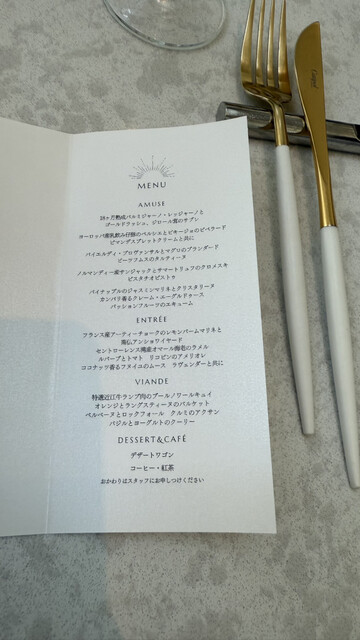 MENU
AMUSE
18ヶ月熟成パルミジャーノ・レッジャーノと
ゴールドラッシュ、ジロール茸のサブレ
ヨーロッパ産乳飲み仔豚のペルシェとピキージョのピペラード
ピマンデスプレットクリームと共に
パイエルディ・プロヴァンサルとマグロのブランダード
ビーツフムスのタルティーヌ
ノルマンディー産サンジャックとサマートリュフのクロメスキ
ピスタチオピストゥ
パイナップルのジャスミンマリネとクリスタリーヌ
カンパリ香るクレーム・エーグルドゥース
パッションフルーツのエキューム
ENTRÉE
フランス産アーティーチョークのレモンバームマリネと
南仏アンショワイヤード
セントローレンス湾産オマール海老のラメル
ルバーブとトマト リコピンのアメリオレ
ココナッツ香るフヌイユのムース ラヴェンダーと共に
VIANDE
特選近江牛ランプ肉のブールノワールキュイ
オレンジとラングスティーヌのバルケット
ベルベーヌとロックフォール クルミのアクサン
バジルとヨーグルトのクーリー
DESSERT&CAFÉ
デザートワゴン
コーヒー・紅茶
おかわりはスタッフにお申しつけください
Cutipol